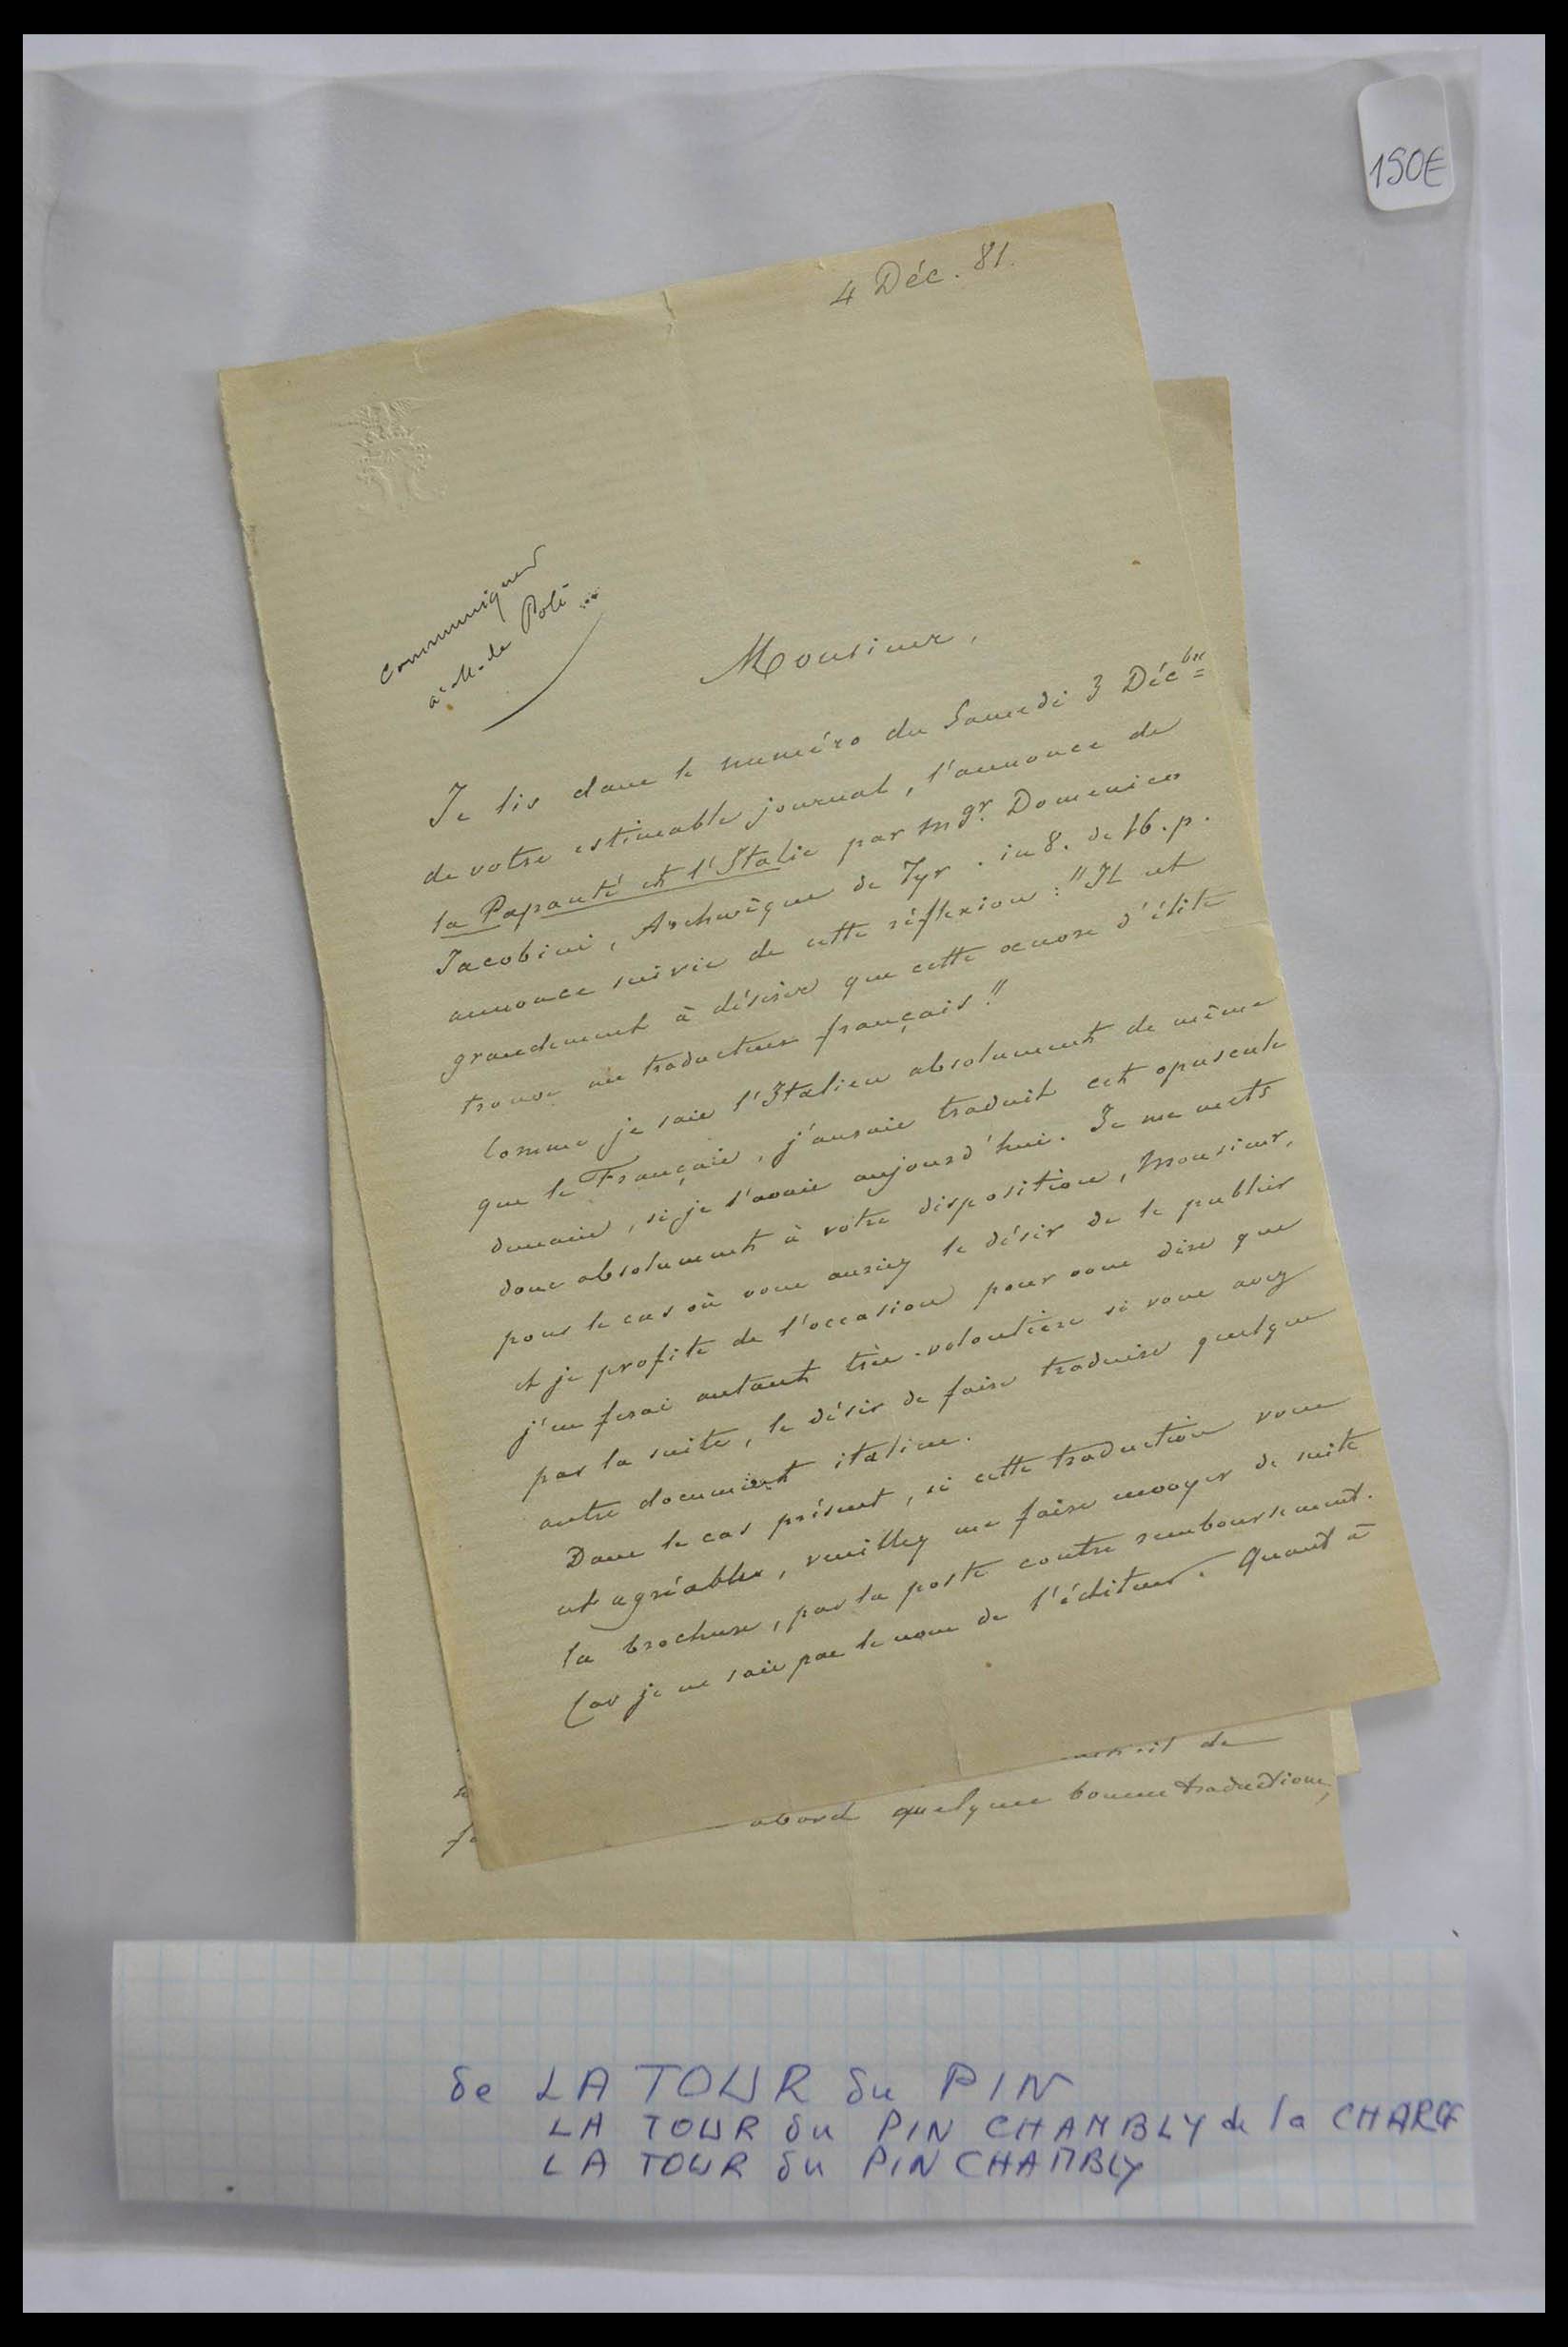 150€
4 Déc. 81.
Communiquer
à M. de Poli
Monsieur,
Je lis dans le numéro du Samedi 3 Déc^bre
de votre estimable journal, l'annonce de
la Papauté et l'Italie par Mgr. Domenico
Jacobini, Archevêque de Tyr. in 8. de 16. p.
annonce suivie de cette réflexion : "Il est
grandement à désirer que cette oeuvre d'élite
trouve un traducteur français."
Comme je sais l'Italien absolument de même
que le Français, j'aurais traduit cet opuscule
demain, si je l'avais aujourd'hui. Je me mets
donc absolument à votre disposition, Monsieur,
pour le cas où vous auriez le désir de le publier
et je profite de l'occasion pour vous dire que
j'en ferai autant très-volontiers si vous avez
par la suite, le désir de faire traduire quelque
autre document italien.
Dans le cas présent, si cette traduction vous
est agréable, veuillez me faire envoyer de suite
la brochure, par la poste contre remboursement.
Car je ne sais pas le nom de l'éditeur. Quant à
de
abord quelques bonnes traductions,
de LA TOUR du PIN
LA TOUR du PIN CHAMBLY de la CHARCE
LA TOUR du PIN CHAMBLY